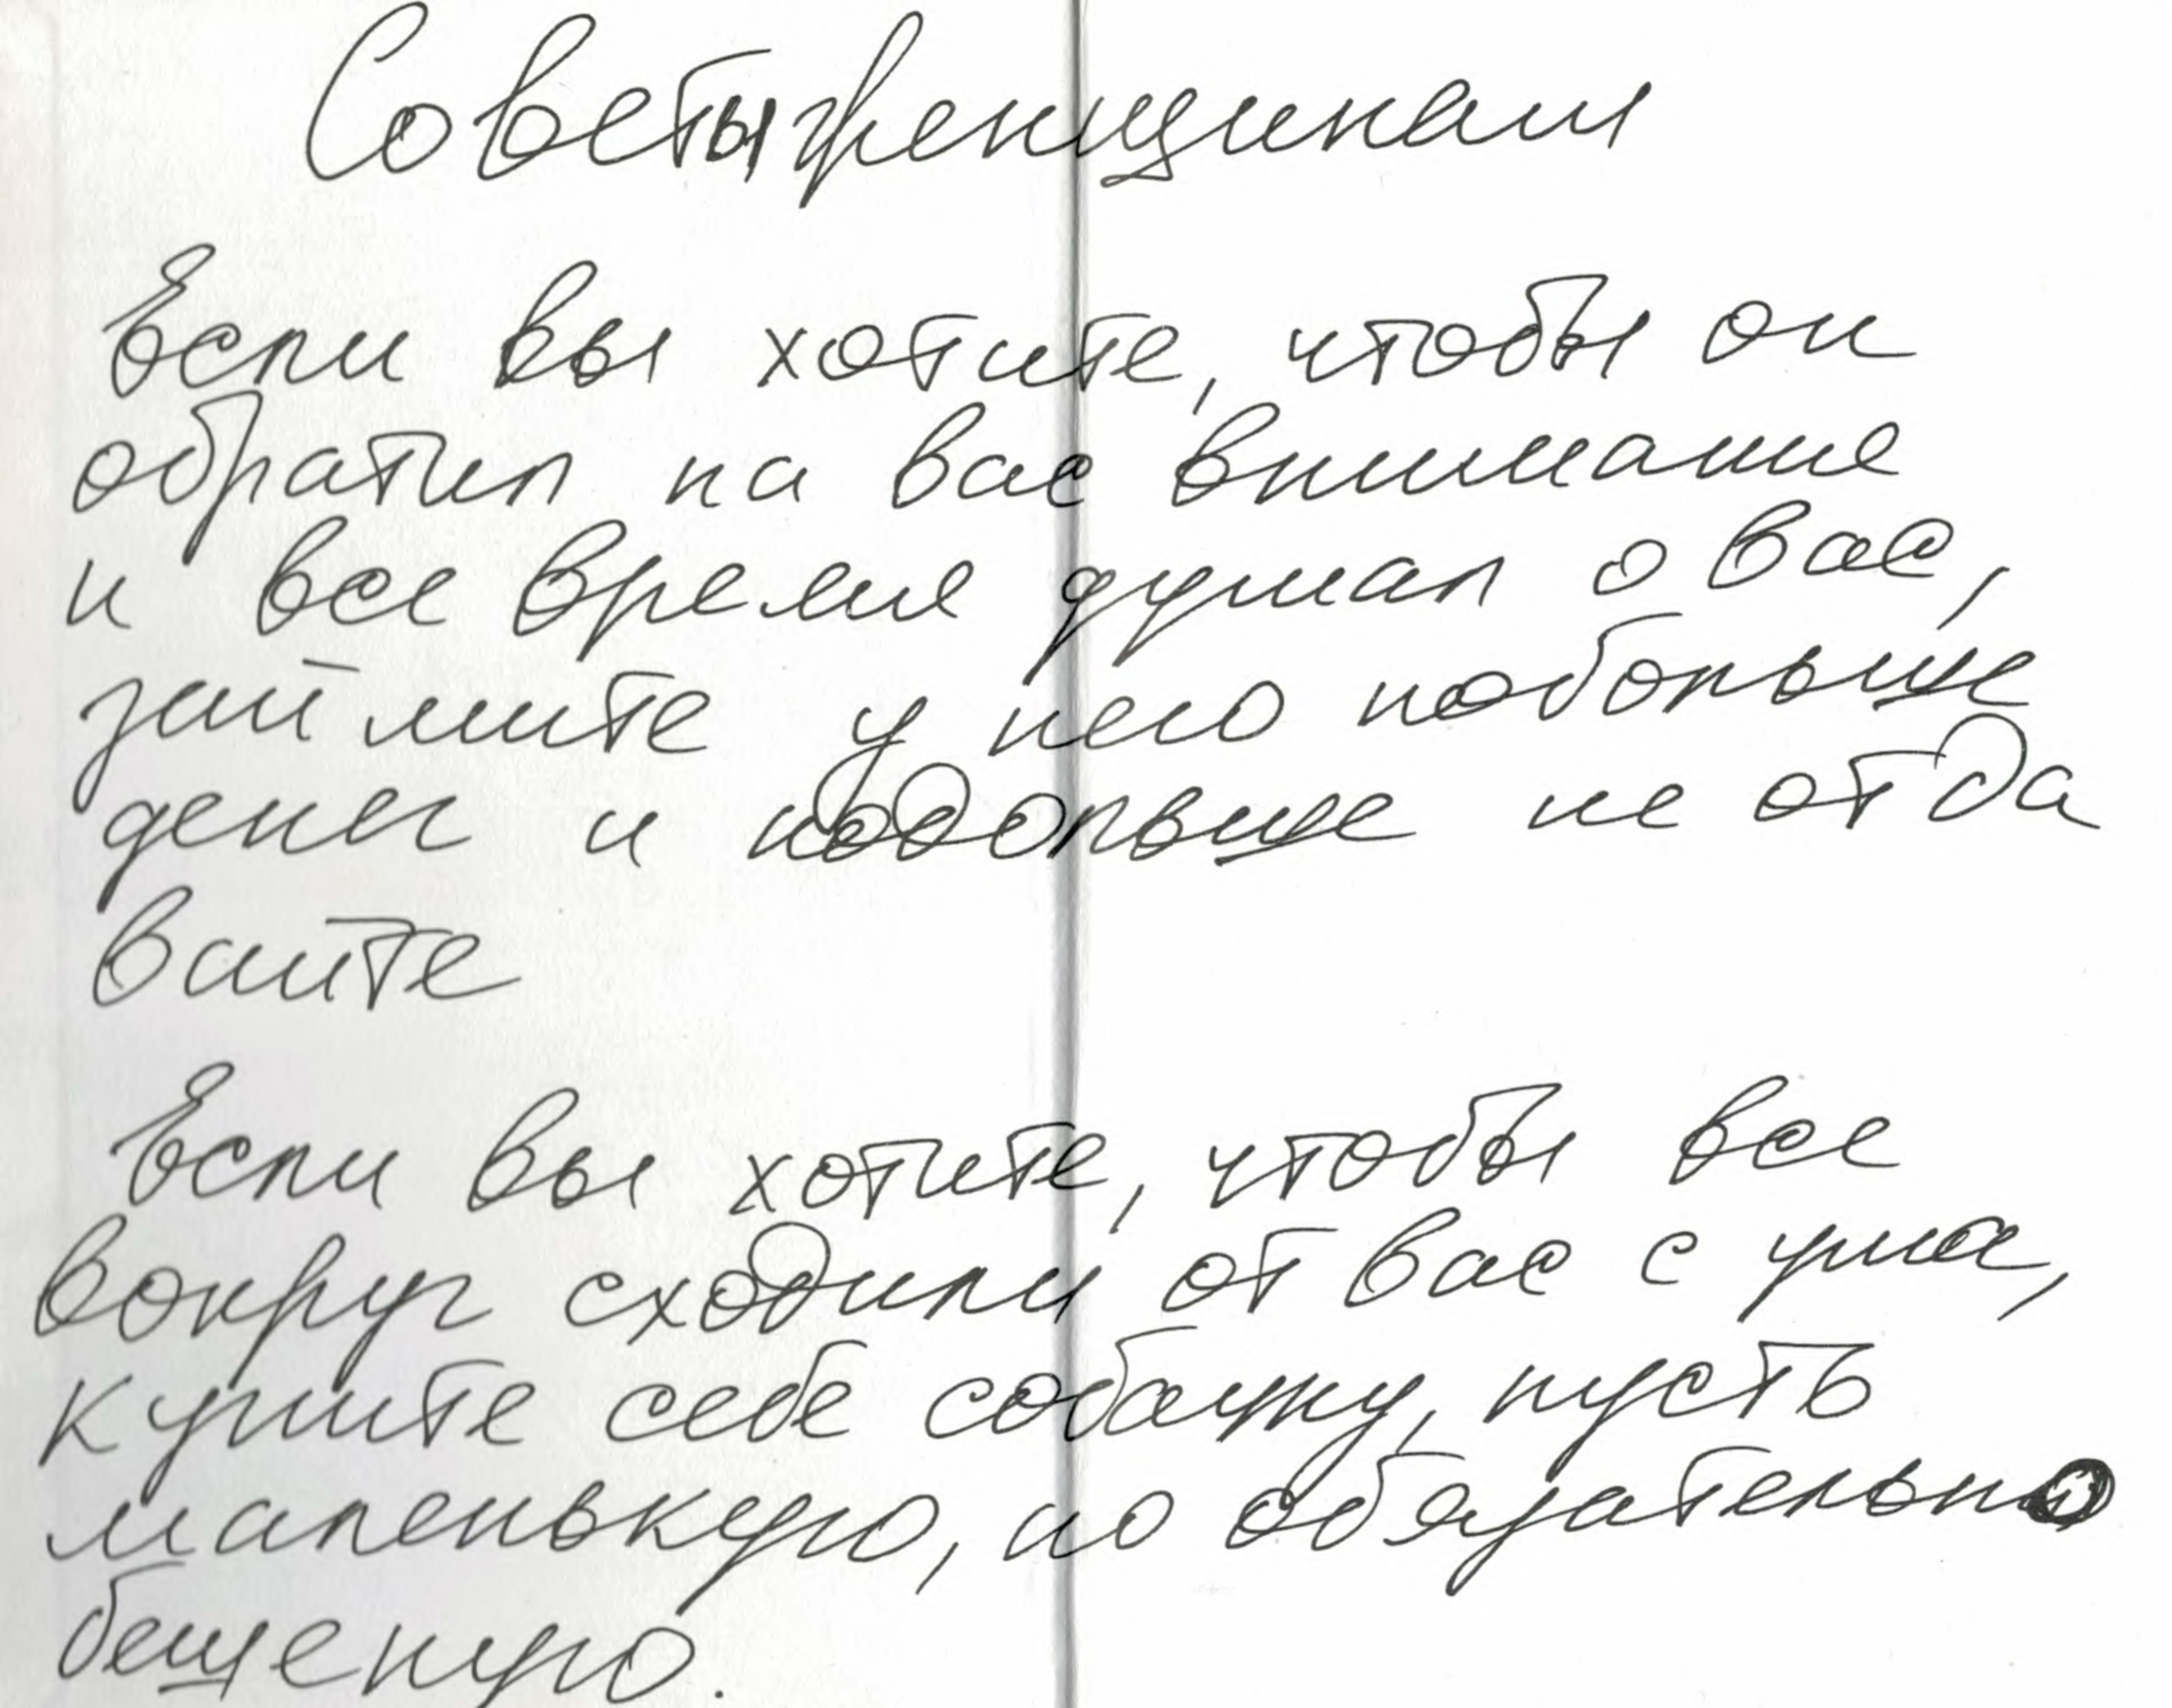 Советы женщинам
Если вы хотите, чтобы он
обратил на вас внимание
и все время думал о вас,
займите у него побольше
денег и подольше не отда
вайте
Если вы хотите, чтобы все
вокруг сходили от вас с ума,
купите себе собачку, пусть
маленькую, но обязательно
бешеную.